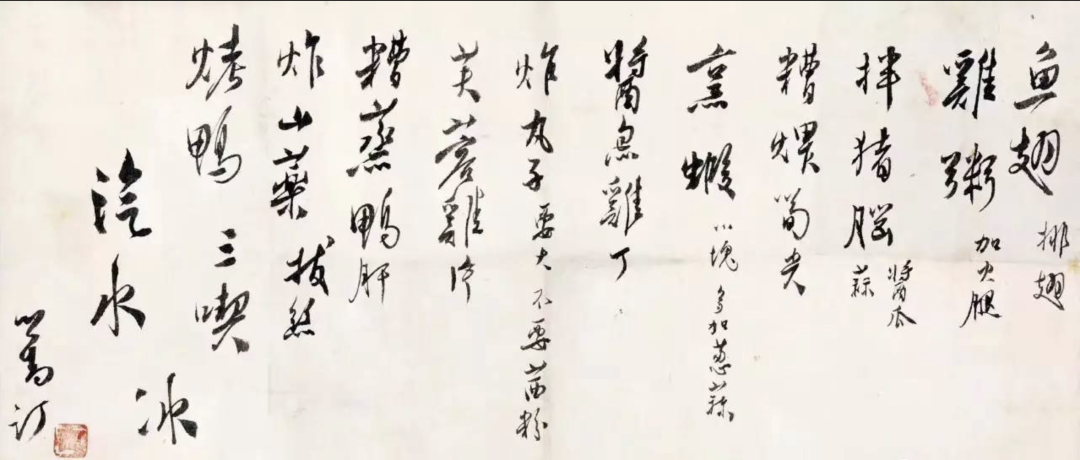 魚翅 排翅
雞粥 加火腿
拌猪腦 醬瓜 蒜
糟煨筍尖
烹蝦 小塊 多加葱蒜
醬 雞丁
炸丸子 要大 不要茜粉
芙蓉雞片
糟蒸鴨肝
炸山藥 拔絲
烤鴨 三喫
汽水 冰
心畬訂